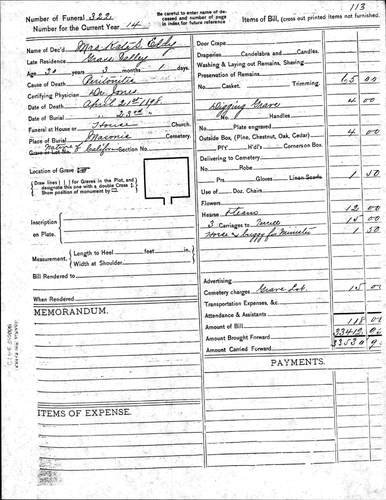 113
Number of Funeral 322
Number for the Current Year 14
Be careful to enter name of deceased and number of page in index for future reference
Items of Bill, (cross out printed items not furnished.
Name of Dec'd Mrs Kate S. Eddy
Late Residence Grass Valley
Age 30 years 3 months 1 days.
Cause of Death Peritonitis
Certifying Physician Dr. Jones
Date of Death April 21st 1898
Date of Burial " 23rd "
Funeral at House or House Church.
Place of Burial Masonic Cemetery.
Grave or Lot No. Section No.
Native of Californ
Location of Grave
Draw lines for Graves in the Plot, and designate this one with a double Cross
Show position of monument by
Inscription on Plate.
Measurement. Length to Heel feet in.
Width at Shoulder in.
Bill Rendered to
When Rendered
MEMORANDUM.
ITEMS OF EXPENSE.
Door Crape
Draperies Candelabra and Candles.
Washing & Laying out Remains, Shaving
Preservation of Remains
No. Casket. Trimming. 65 00
Digging Grave 4 00
No Handles
Plate engraved
Outside Box (Pine, Chestnut, Oak, Cedar) 4 00
P'Y H'd'l's Corners on Box
Delivering to Cemetery
No. Robe
Prs. Gloves Linen Scarfs 1 50
Use of Doz. Chairs
Flowers
Hearse & team 12 00
3 Carriages to 15 00
Horse & Buggy for Minister 1 50
Advertising
Cemetery charges Grave Lot 15 00
Transportation Expenses, &c.
Attendance & Assistants
Amount of Bill 118 00
Amount Brought Forward
Amount Carried Forward
PAYMENTS.